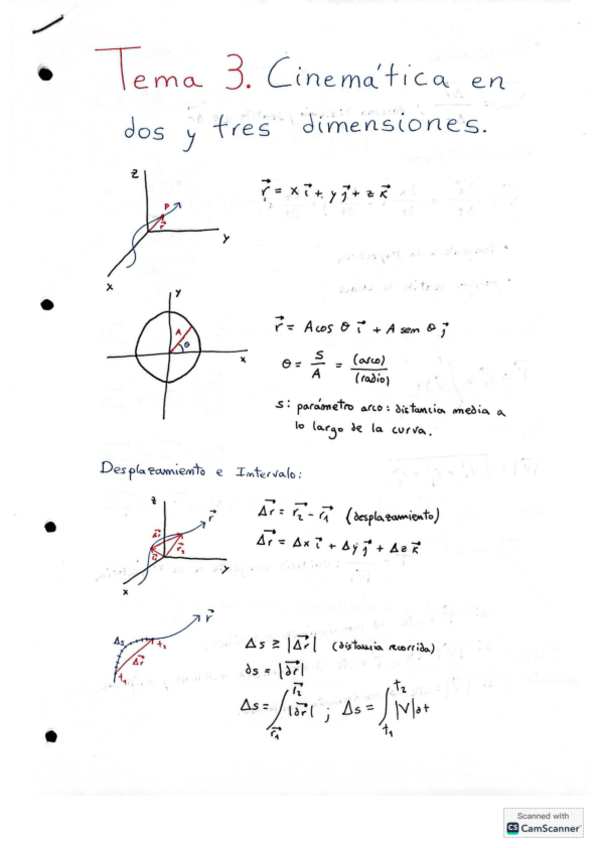 Tema 3. Cinemática en
dos y tres dimensiones.
z
P
r⃗
y
x
r⃗ = x i⃗ + y j⃗ + z k⃗
y
A
θ
x
r⃗ = A cos θ i⃗ + A sem θ j⃗
θ = s/A = (arco)/(radio)
s: parámetro arco: distancia media a
lo largo de la curva.
Desplazamiento e Intervalo:
z
r⃗
Δr⃗
r⃗₁
r⃗₂
y
x
Δr⃗ = r⃗₂ - r⃗₁ (desplazamiento)
Δr⃗ = Δx i⃗ + Δy j⃗ + Δz k⃗
r⃗
Δs
t₂
Δr⃗
t₁
Δs ≥ |Δr⃗| (distancia recorrida)
ds = |dr⃗|
Δs = ∫_{r⃗₁}^{r⃗₂} |dr⃗| ; Δs = ∫_{t₁}^{t₂} |V| dt
Scanned with
CS CamScanner